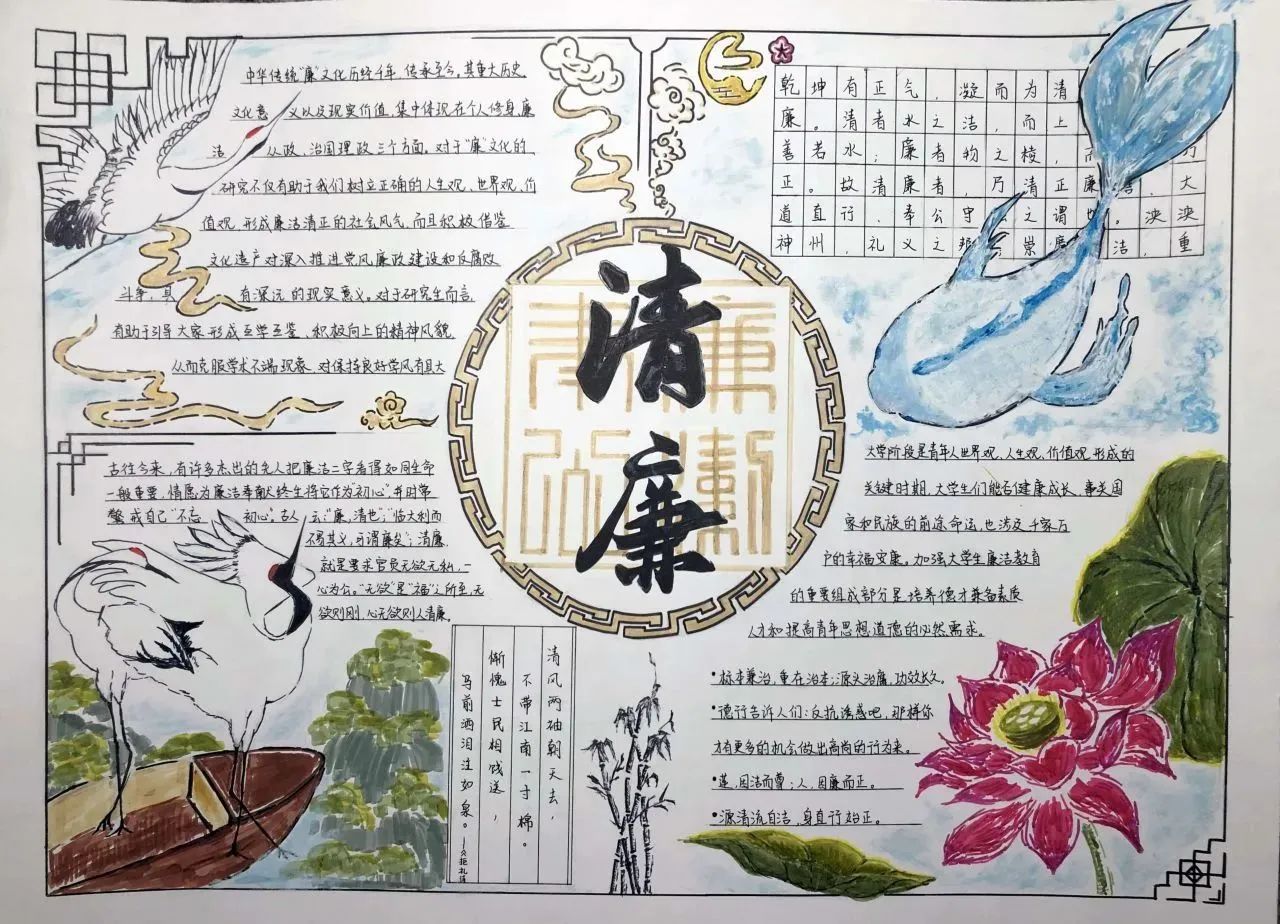 中华传统“廉”文化历经千年,传承至今。其重大历史
文化意义以及现实价值,集中体现在个人修身、廉
洁从政、治国理政三个方面。对于“廉”文化的
研究不仅有助于我们树立正确的人生观、世界观、价
值观,形成廉洁清正的社会风气,而且积极借鉴
文化遗产对深入推进党风廉政建设和反腐败
斗争,具有深远的现实意义。对于研究生而言,
有助于引导大家形成互学互鉴、积极向上的精神风貌,
从而克服学术不端现象,对保持良好学风有且大
乾坤有正气,凝而为清
廉。清者水之洁,而上
善若水;廉者物之棱,而方
正。故清廉者,乃清正廉洁、大
道直行、奉公守之谓也。泱泱
神州,礼义之邦,崇廉洁,重
清廉
古往今来,有许多杰出的先人把廉洁二字看得如同生命
一般重要,情愿为廉洁奉献终生将它作为“初心”并时常
警戒自己“不忘初心”。古人云:“廉,清也”;“临大利而
不易其义,可谓廉矣”;清廉,
就是要求官员无欲无私,一
心为公。“无欲”是“福”之所至,无
欲则刚,心无欲则人清廉。
清风两袖朝天去,
不带江南一寸棉。
惭愧士民相饯送,
马前洒泪注如泉。
大学阶段是青年人世界观、人生观、价值观、形成的
关键时期,大学生们能否健康成长,事关国
家和民族的前途命运,也涉及千家万
户的幸福安康。加强大学生廉洁教育
的重要组成部分是培养德才兼备素质
人才和提高青年思想道德的必然需求。
•标本兼治,重在治本;源头治腐,功效长久。
•德行告诉人们:反抗诱惑吧,那样你
才有更多的机会做出高尚的行为来。
•莲,因洁而尊;人,因廉而正。
•源清流自洁,身直行始正。